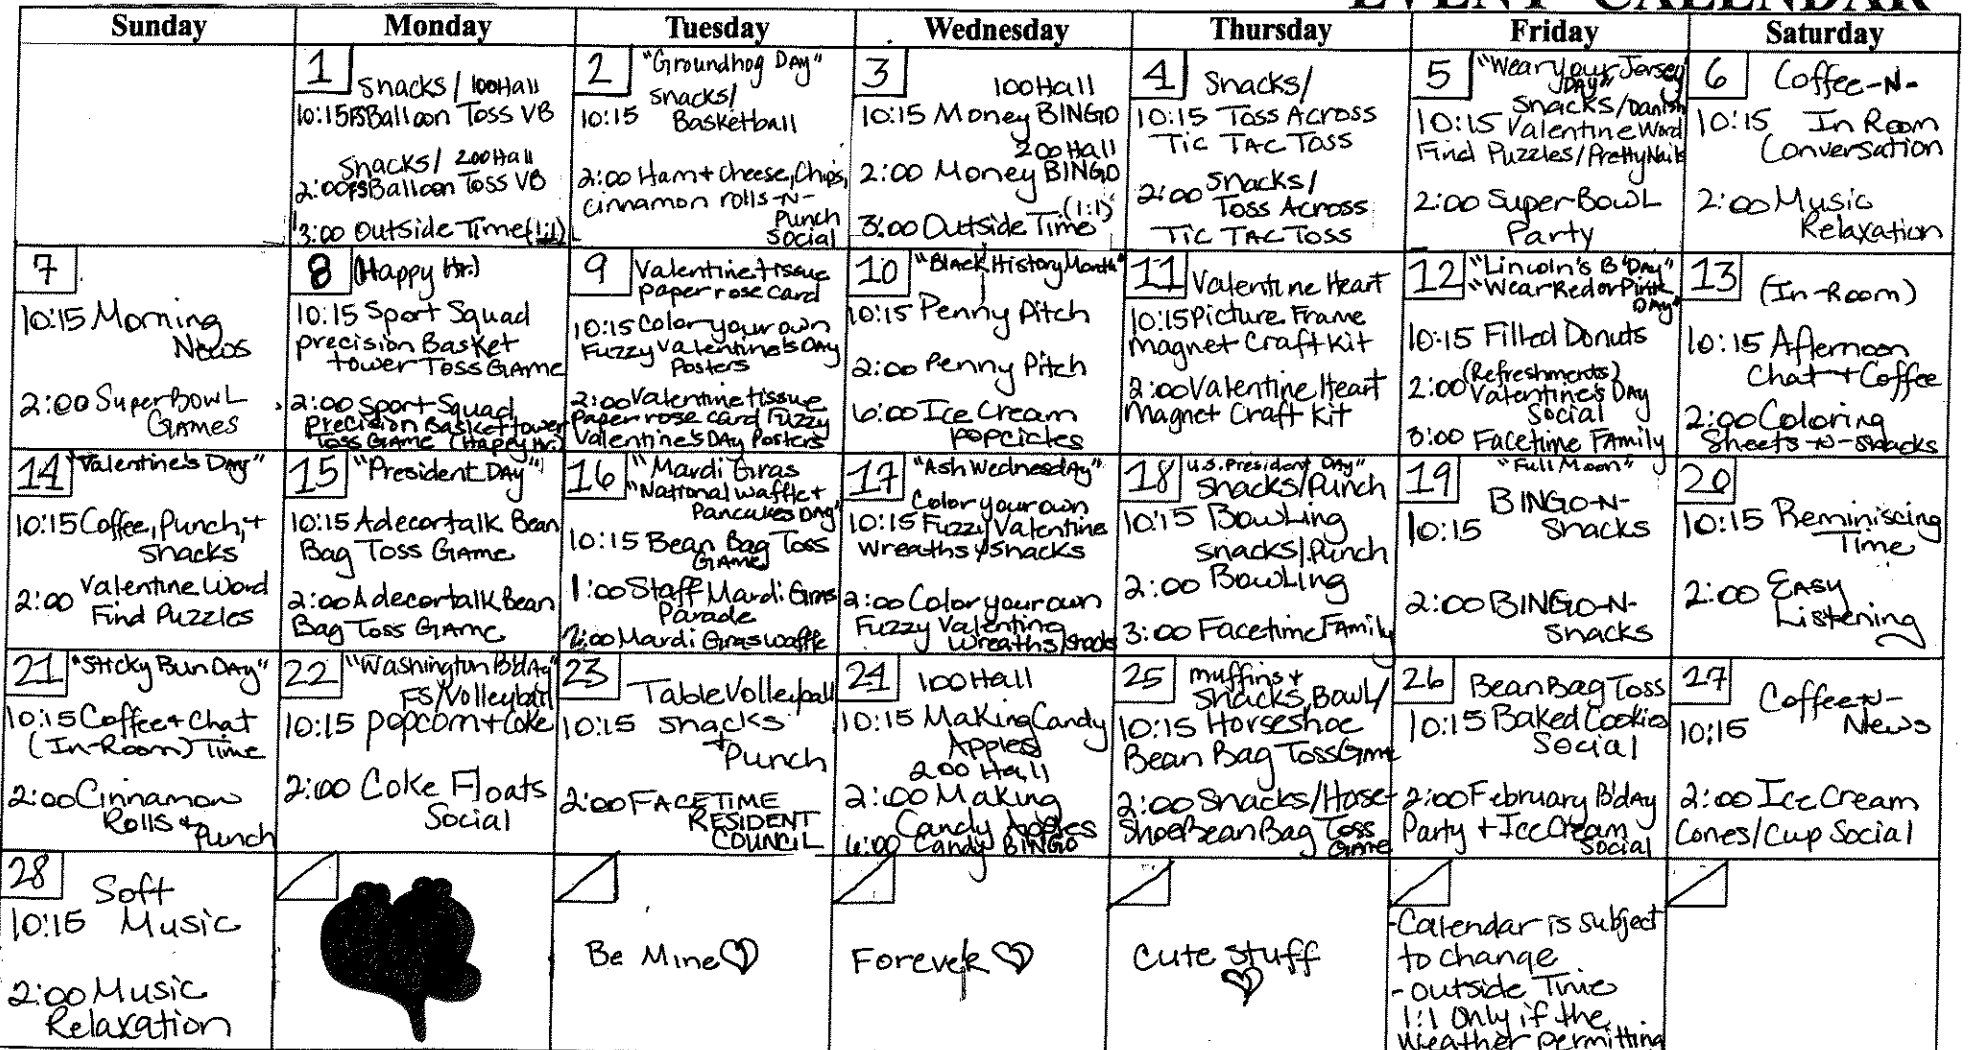 EVENT CALENDAR
Sunday Monday Tuesday Wednesday Thursday Friday Saturday
1
Snacks/ 100Hall
10:15 FS Balloon Toss VB
Snacks/ 200Hall
2:00 FS Balloon Toss VB
3:00 Outside Time (1:1)
2 "Groundhog Day"
Snacks/
10:15 Basketball
2:00 Ham + Cheese, Chips,
Cinnamon rolls -N-
Punch
Social
3
100Hall
10:15 Money BINGO
200Hall
2:00 Money BINGO
3:00 Outside Time (1:1)
4 Snacks/
10:15 Toss Across
Tic Tac Toss
2:00 Snacks/
Toss Across
Tic Tac Toss
5 "Wear Your Jersey
Day"
Snacks/Danish
10:15 Valentine Word
Find Puzzles/Pretty Nails
2:00 Super Bowl
Party
6 Coffee-N-
10:15 In Room
Conversation
2:00 Music
Relaxation
7
10:15 Morning
News
2:00 Super Bowl
Games
8 (Happy Hr.)
10:15 Sport Squad
precision Basket
tower Toss Game
2:00 Sport Squad
Precision Basket tower
Toss Game (Happy Hr.)
9 Valentine tissue
paper rose card
10:15 Color your own
Fuzzy Valentine's Day
Posters
2:00 Valentine tissue
Paper rose card Fuzzy
Valentine's Day Posters
10 "Black History Month"
10:15 Penny Pitch
2:00 Penny Pitch
6:00 Ice Cream
popcicles
11 Valentine Heart
10:15 Picture Frame
Magnet Craft Kit
2:00 Valentine Heart
Magnet Craft Kit
12 "Lincoln's B'Day"
"Wear Red or Pink
Day"
10:15 Filled Donuts
(Refreshments)
2:00 Valentine's Day
Social
3:00 Facetime Family
13 (In-Room)
10:15 Afternoon
Chat + Coffee
2:00 Coloring
Sheets -N- snacks
14 "Valentine's Day"
10:15 Coffee, Punch, +
Snacks
2:00 Valentine Word
Find Puzzles
15 "President Day"
10:15 Adecortalk Bean
Bag Toss Game
2:00 Adecortalk Bean
Bag Toss Game
16 "Mardi Gras
"National Waffle +
Pancakes Day"
10:15 Bean Bag Toss
Game
1:00 Staff Mardi Gras
Parade
2:00 Mardi Gras waffle
17 "Ash Wednesday"
Color your own
10:15 Fuzzy Valentine
Wreaths / snacks
2:00 Color your own
Fuzzy Valentine
Wreaths/snacks
18 "U.S. President Day"
Snacks/Punch
10:15 Bowling
Snacks/Punch
2:00 Bowling
3:00 Facetime Family
19 "Full Moon"
BINGO-N-
10:15 Snacks
2:00 BINGO-N-
Snacks
20
10:15 Reminiscing
Time
2:00 Easy
Listening
21 "Sticky Bun Day"
10:15 Coffee + Chat
(In-Room) Time
2:00 Cinnamon
Rolls +
Punch
22 "Washington B'day"
FS/Volleyball
10:15 popcorn + Coke
2:00 Coke Floats
Social
23
Table Volleyball
10:15 snacks
+ Punch
2:00 FACETIME
RESIDENT
COUNCIL
24 100Hall
10:15 Making Candy
Apples
200 Hall
2:00 Making
Candy Apples
6:00 Candy BINGO
25 muffins +
Snacks, Bowl/
10:15 Horseshoe
Bean Bag Toss Game
2:00 Snacks/Horse-
Shoe Bean Bag Toss
Game
26 Bean Bag Toss
10:15 Baked Cookies
Social
2:00 February B'day
Party + Ice Cream
Social
27 Coffee-N-
10:15 News
2:00 Ice Cream
Cones/Cup Social
28 Soft
10:15 Music
2:00 Music
Relaxation
Be Mine
Forever
Cute Stuff
-Calendar is subject
to change
-Outside Time
1:1 Only if the
Weather permitting